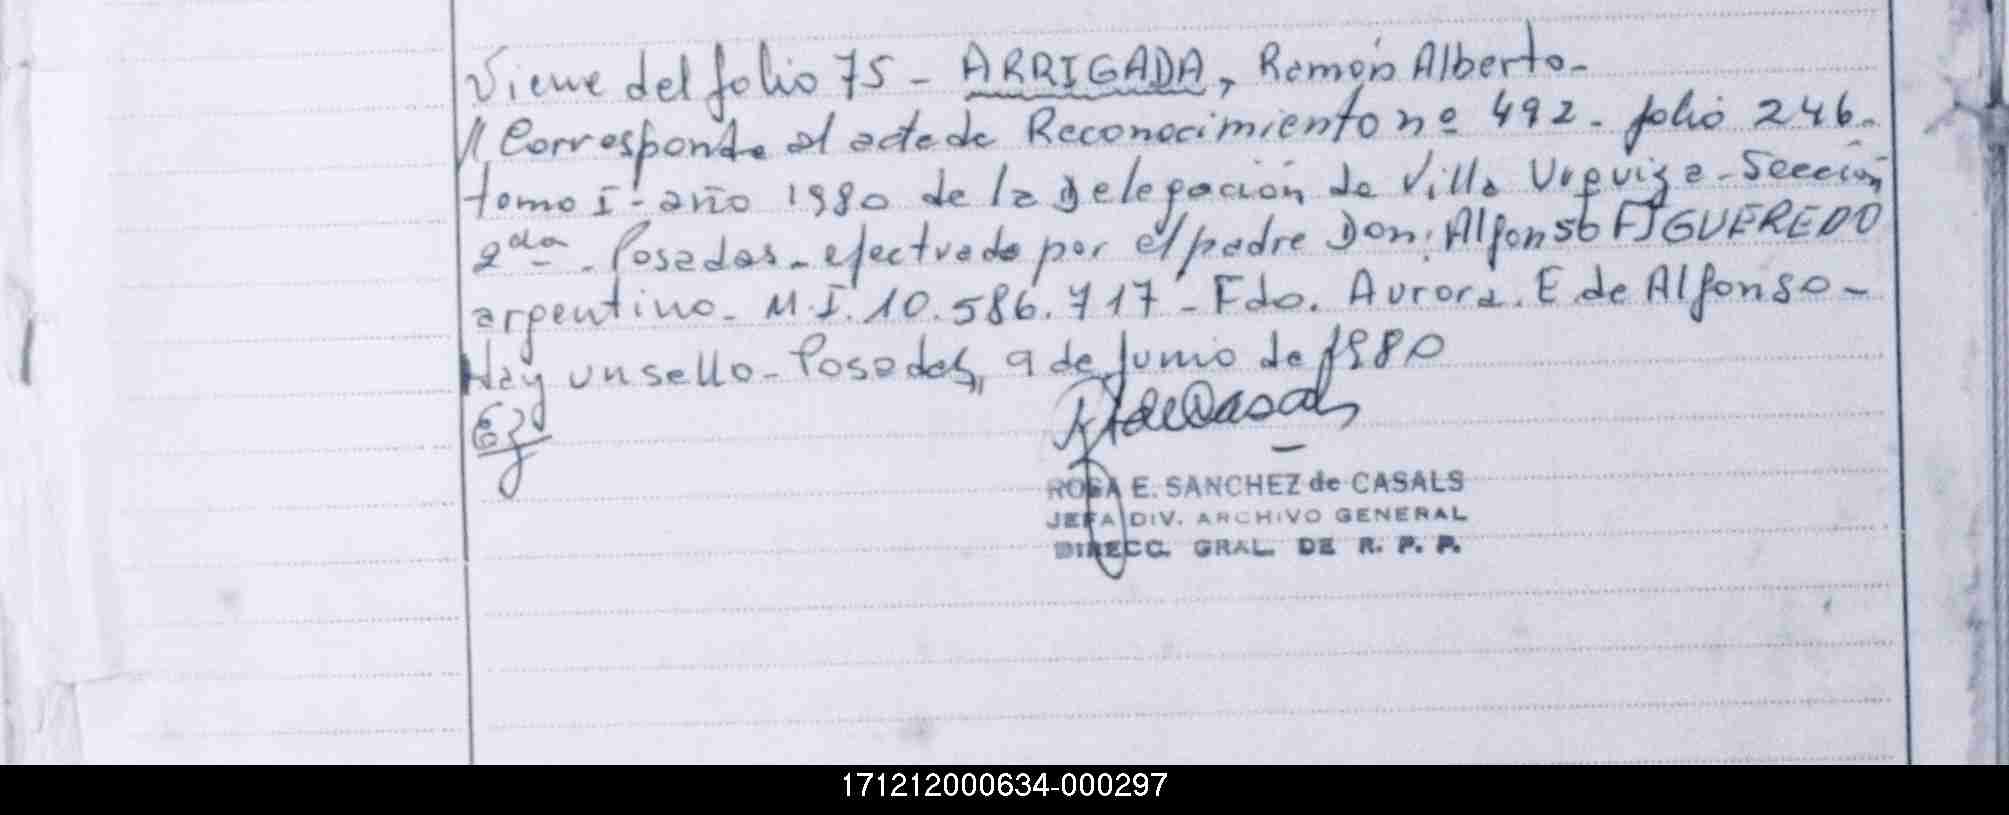 Viene del folio 75 - ARRIGADA, Ramón Alberto -
// Corresponde al acta de Reconocimiento nº 492 - folio 246 -
tomo I - año 1980 de la Delegación de Villa Urquiza - Sección
2da - Posadas - efectuado por el padre Don: Alfonso FIGUEREDO
argentino - M.I. 10.586.717 - Fdo. Aurora. E de Alfonso -
Hay un sello - Posadas, 9 de Junio de 1980
ROSA E. SANCHEZ de CASALS
JEFA DIV. ARCHIVO GENERAL
DIRECC. GRAL. DE R. P. P.
171212000634-000297